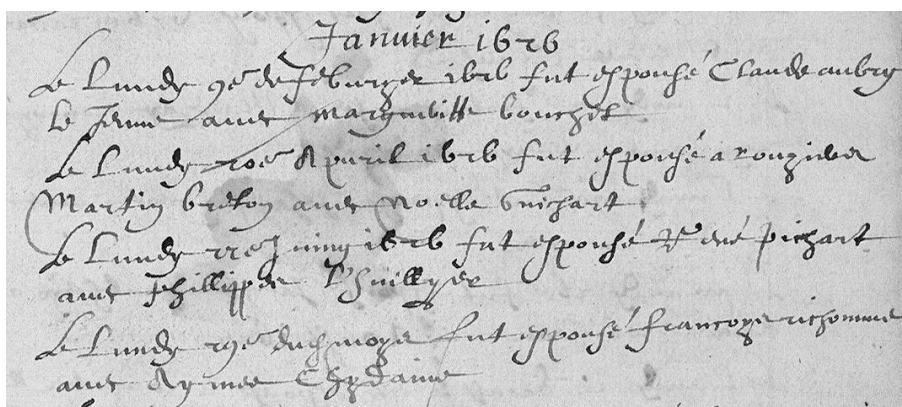 Janvier 1626
Le Lundy 9e de feburyer 1626 fut espousé Claude aubry
le Jeune avec Margueritte bouchet
Le Lundy 20e Apuril 1626 fut espousé a rouziers
Martin breton avec Noelle Guichart
Le Lundy 22e Juing 1626 fut espousé René pichart
avec phillippes L'huillyer
Le Lundy 29e dud moys fut espousé francoys richomme
avec Aymee